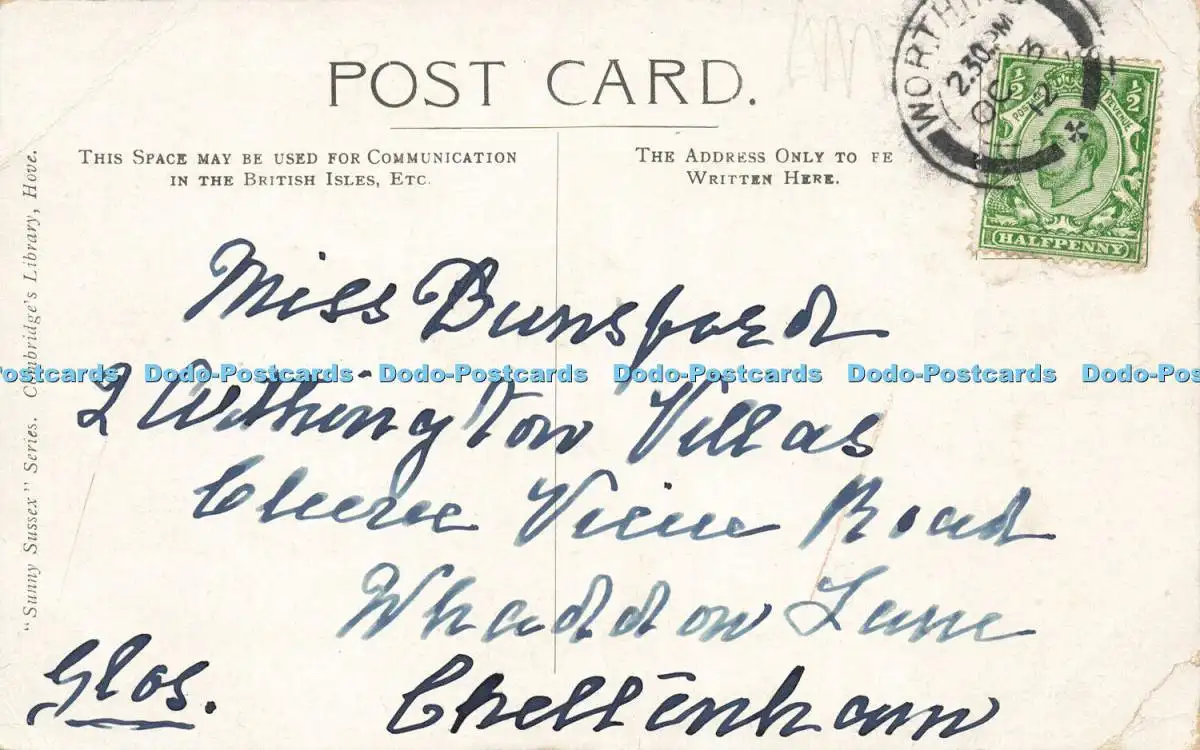 POST CARD.
THIS SPACE MAY BE USED FOR COMMUNICATION
IN THE BRITISH ISLES, ETC.
THE ADDRESS ONLY TO
WRITTEN HERE.
WORTHING
2.30PM
OC 3
12
½ ½
POSTAGE REVENUE
HALFPENNY
"Sunny Sussex" Series. Combridge's Library, Hove.
Miss Bunsford
2 Withington Villas
View Road
Whaddon Lane
Cheltenham
Glos.
Dodo-Postcards Dodo-Postcards Dodo-Postcards Dodo-Postcards Dodo-Postcards